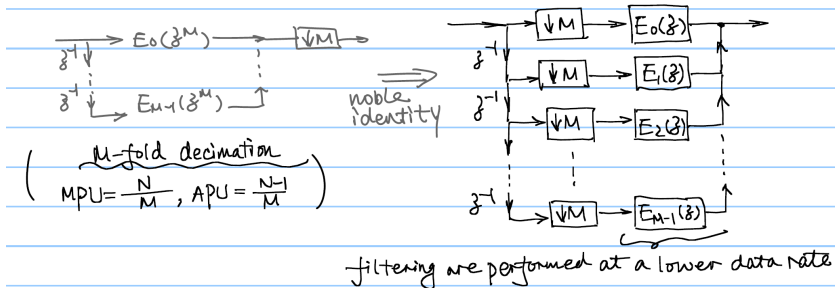 E₀(z^M) ↓M
z⁻¹
z⁻¹ E_{M-1}(z^M)
noble
identity
M-fold decimation
( MPU = N/M , APU = N-1/M )
↓M E₀(z)
z⁻¹
↓M E₁(z)
z⁻¹
↓M E₂(z)
z⁻¹ ↓M E_{M-1}(z)
filtering are performed at a lower data rate